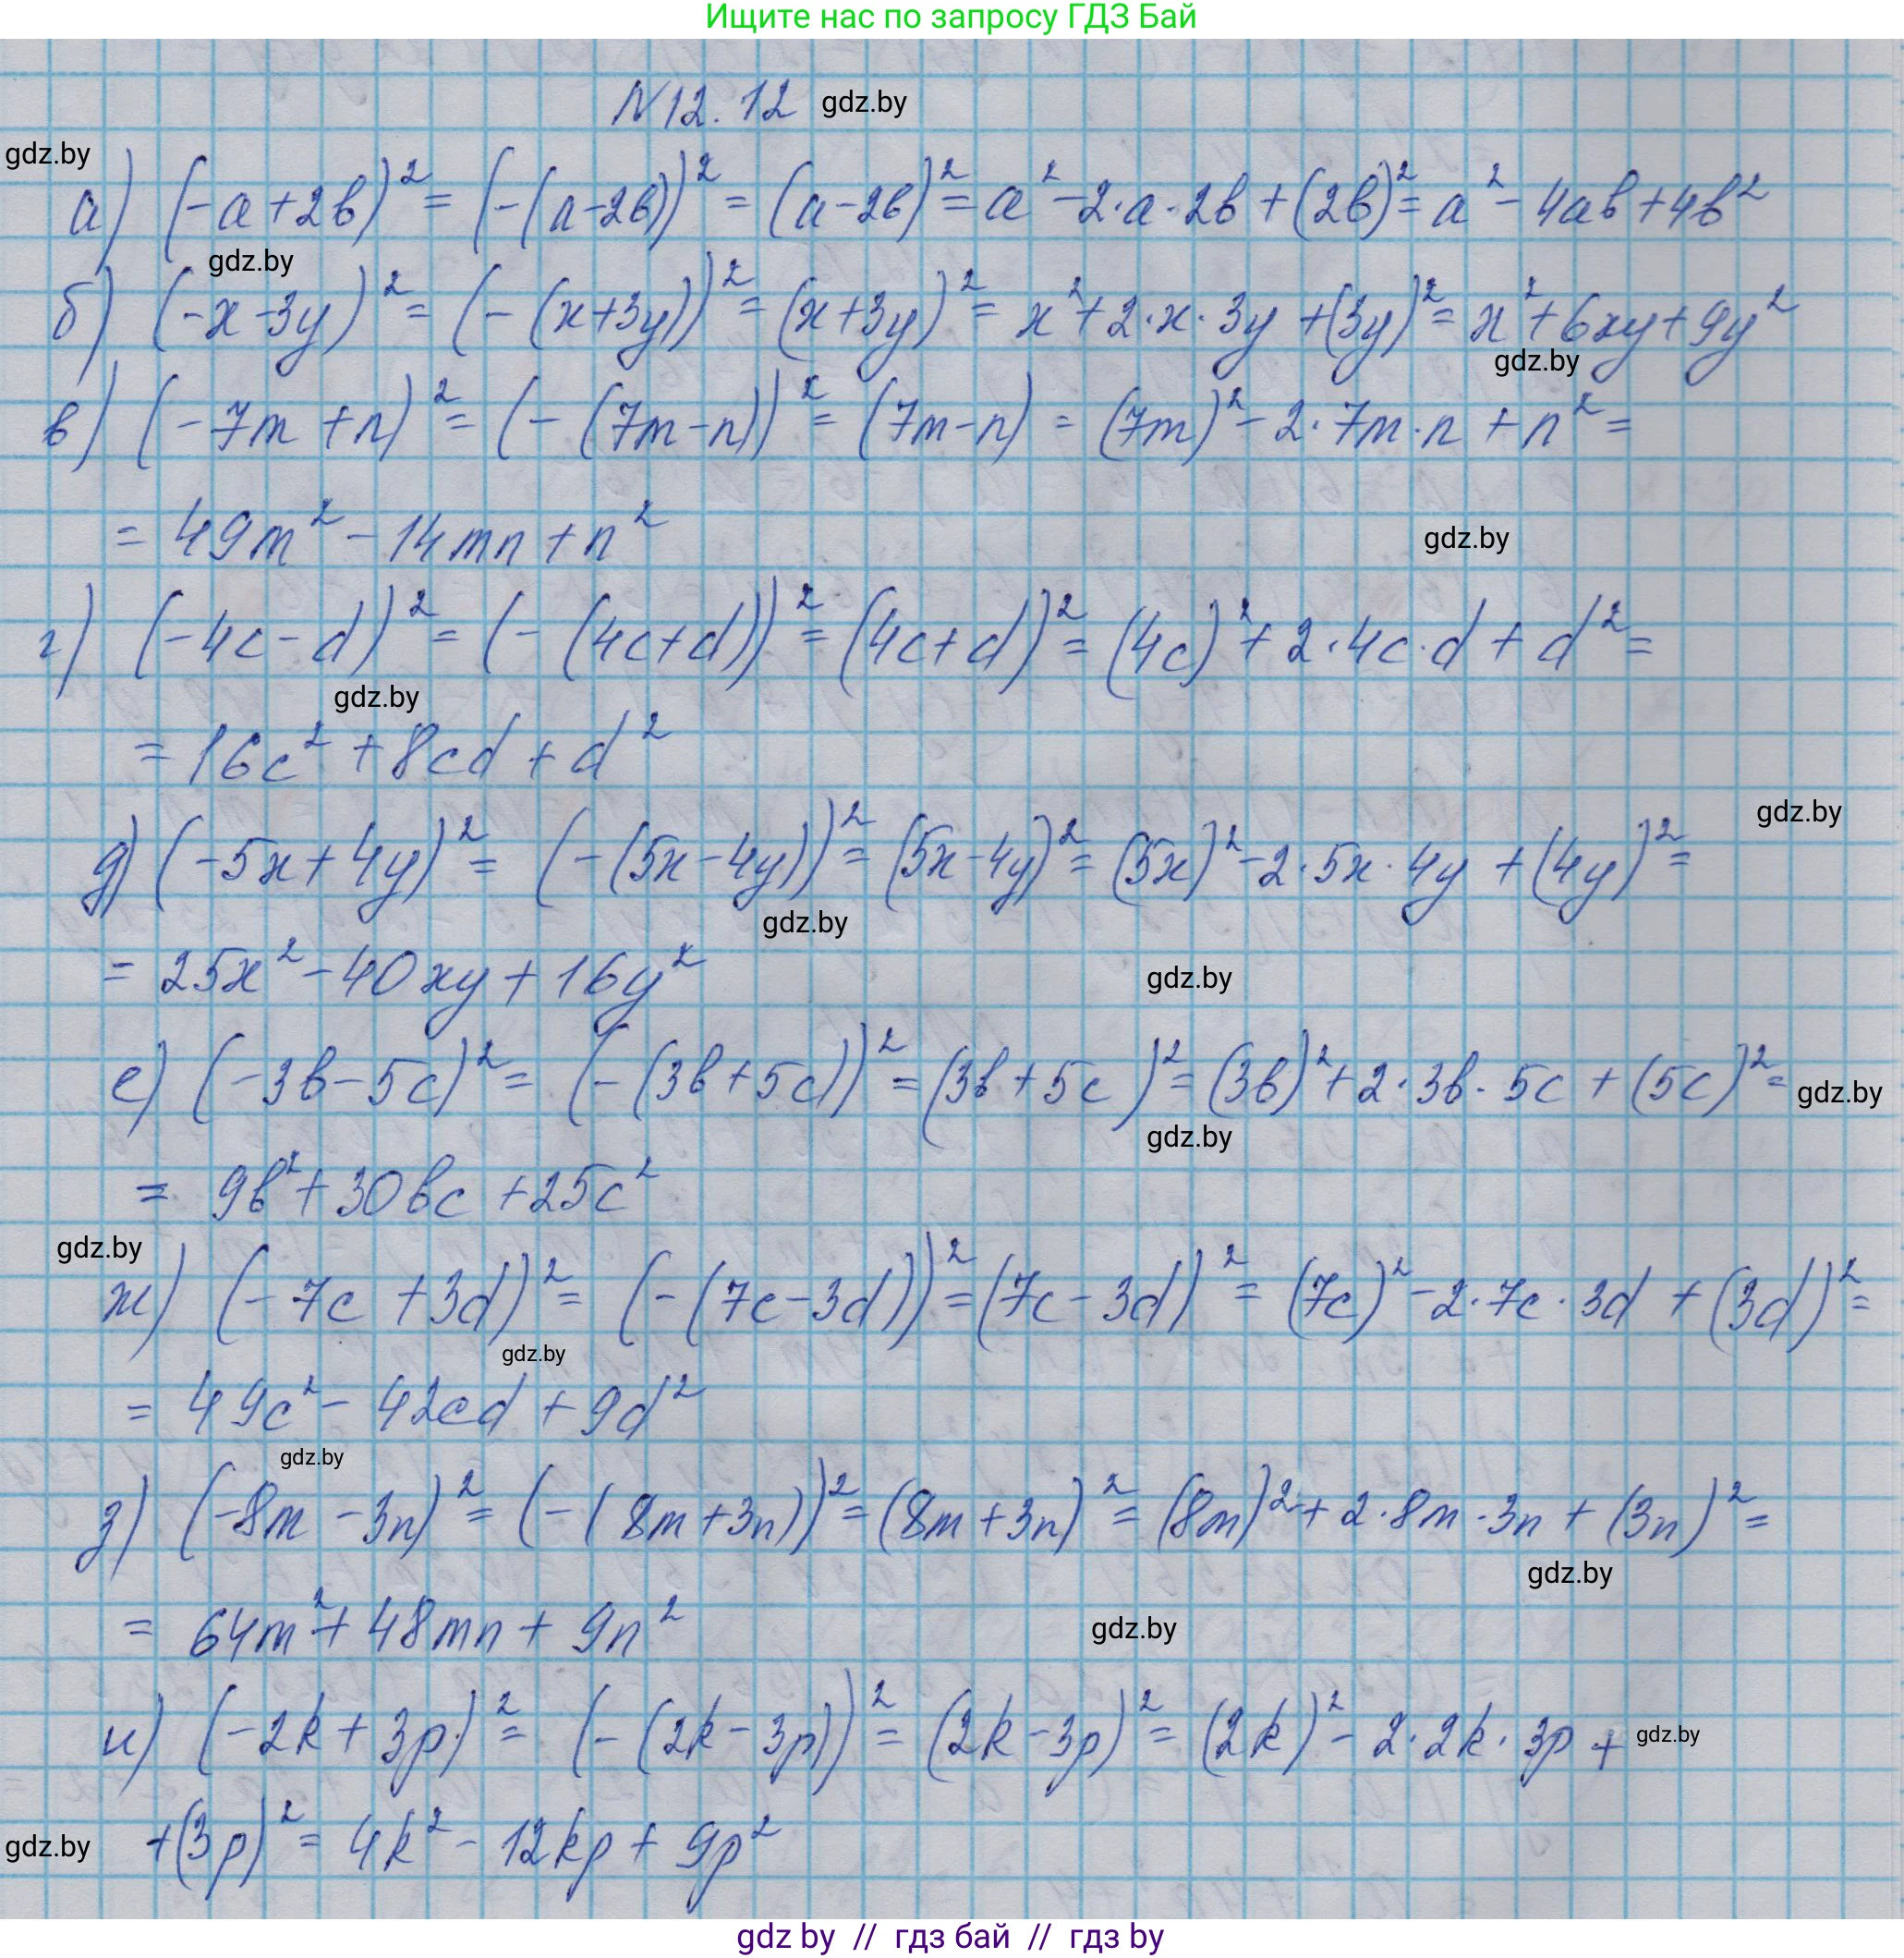 Ищите нас по запросу ГДЗ Бай
N12.12 gdz.by
gdz.by
а) (-a+2b)² = (-(a-2b))² = (a-2b)² = a² -2·a·2b+(2b)² = a² - 4ab+4b²
gdz.by
б) (-x-3y)² = (-(x+3y))² = (x+3y)² = x²+2·x·3y+(3y)² = x²+6xy+9y²
gdz.by
в) (-7m+n)² = (-(7m-n))² = (7m-n) = (7m)² - 2·7m·n + n² =
= 49m² - 14mn + n²
gdz.by
г) (-4c-d)² = (-(4c+d))² = (4c+d)² = (4c)² + 2·4c·d + d² =
gdz.by
= 16c² + 8cd + d²
gdz.by
д) (-5x+4y)² = (-(5x-4y))² = (5x-4y)² = (5x)² - 2·5x·4y + (4y)² =
gdz.by
= 25x² - 40xy + 16y²
gdz.by
е) (-3b-5c)² = (-(3b+5c))² = (3b+5c)² = (3b)² + 2·3b·5c + (5c)² =
gdz.by
gdz.by
= 9b² + 30bc + 25c²
gdz.by
ж) (-7c+3d)² = (-(7c-3d))² = (7c-3d)² = (7c)² - 2·7c·3d + (3d)² =
gdz.by
= 49c² - 42cd + 9d²
gdz.by
з) (-8m-3n)² = (-(8m+3n))² = (8m+3n)² = (8m)² + 2·8m·3n + (3n)² =
gdz.by
= 64m² + 48mn + 9n²
gdz.by
и) (-2k+3p)² = (-(2k-3p))² = (2k-3p)² = (2k)² - 2·2k·3p +
gdz.by
+(3p)² = 4k² - 12kp + 9p²
gdz.by
gdz by // гдз бай // гдз by